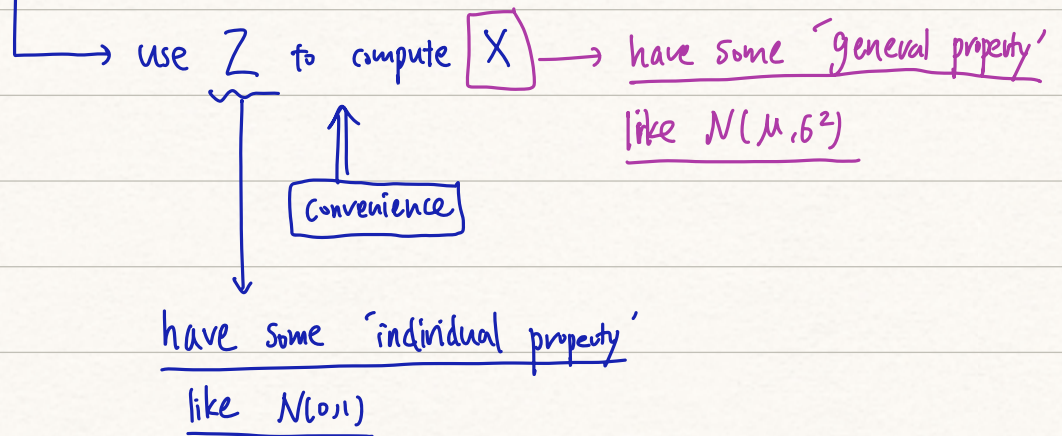 use Z to compute X → have some 'general property'
like N(μ,σ²)
Convenience
have some 'individual property'
like N(0,1)